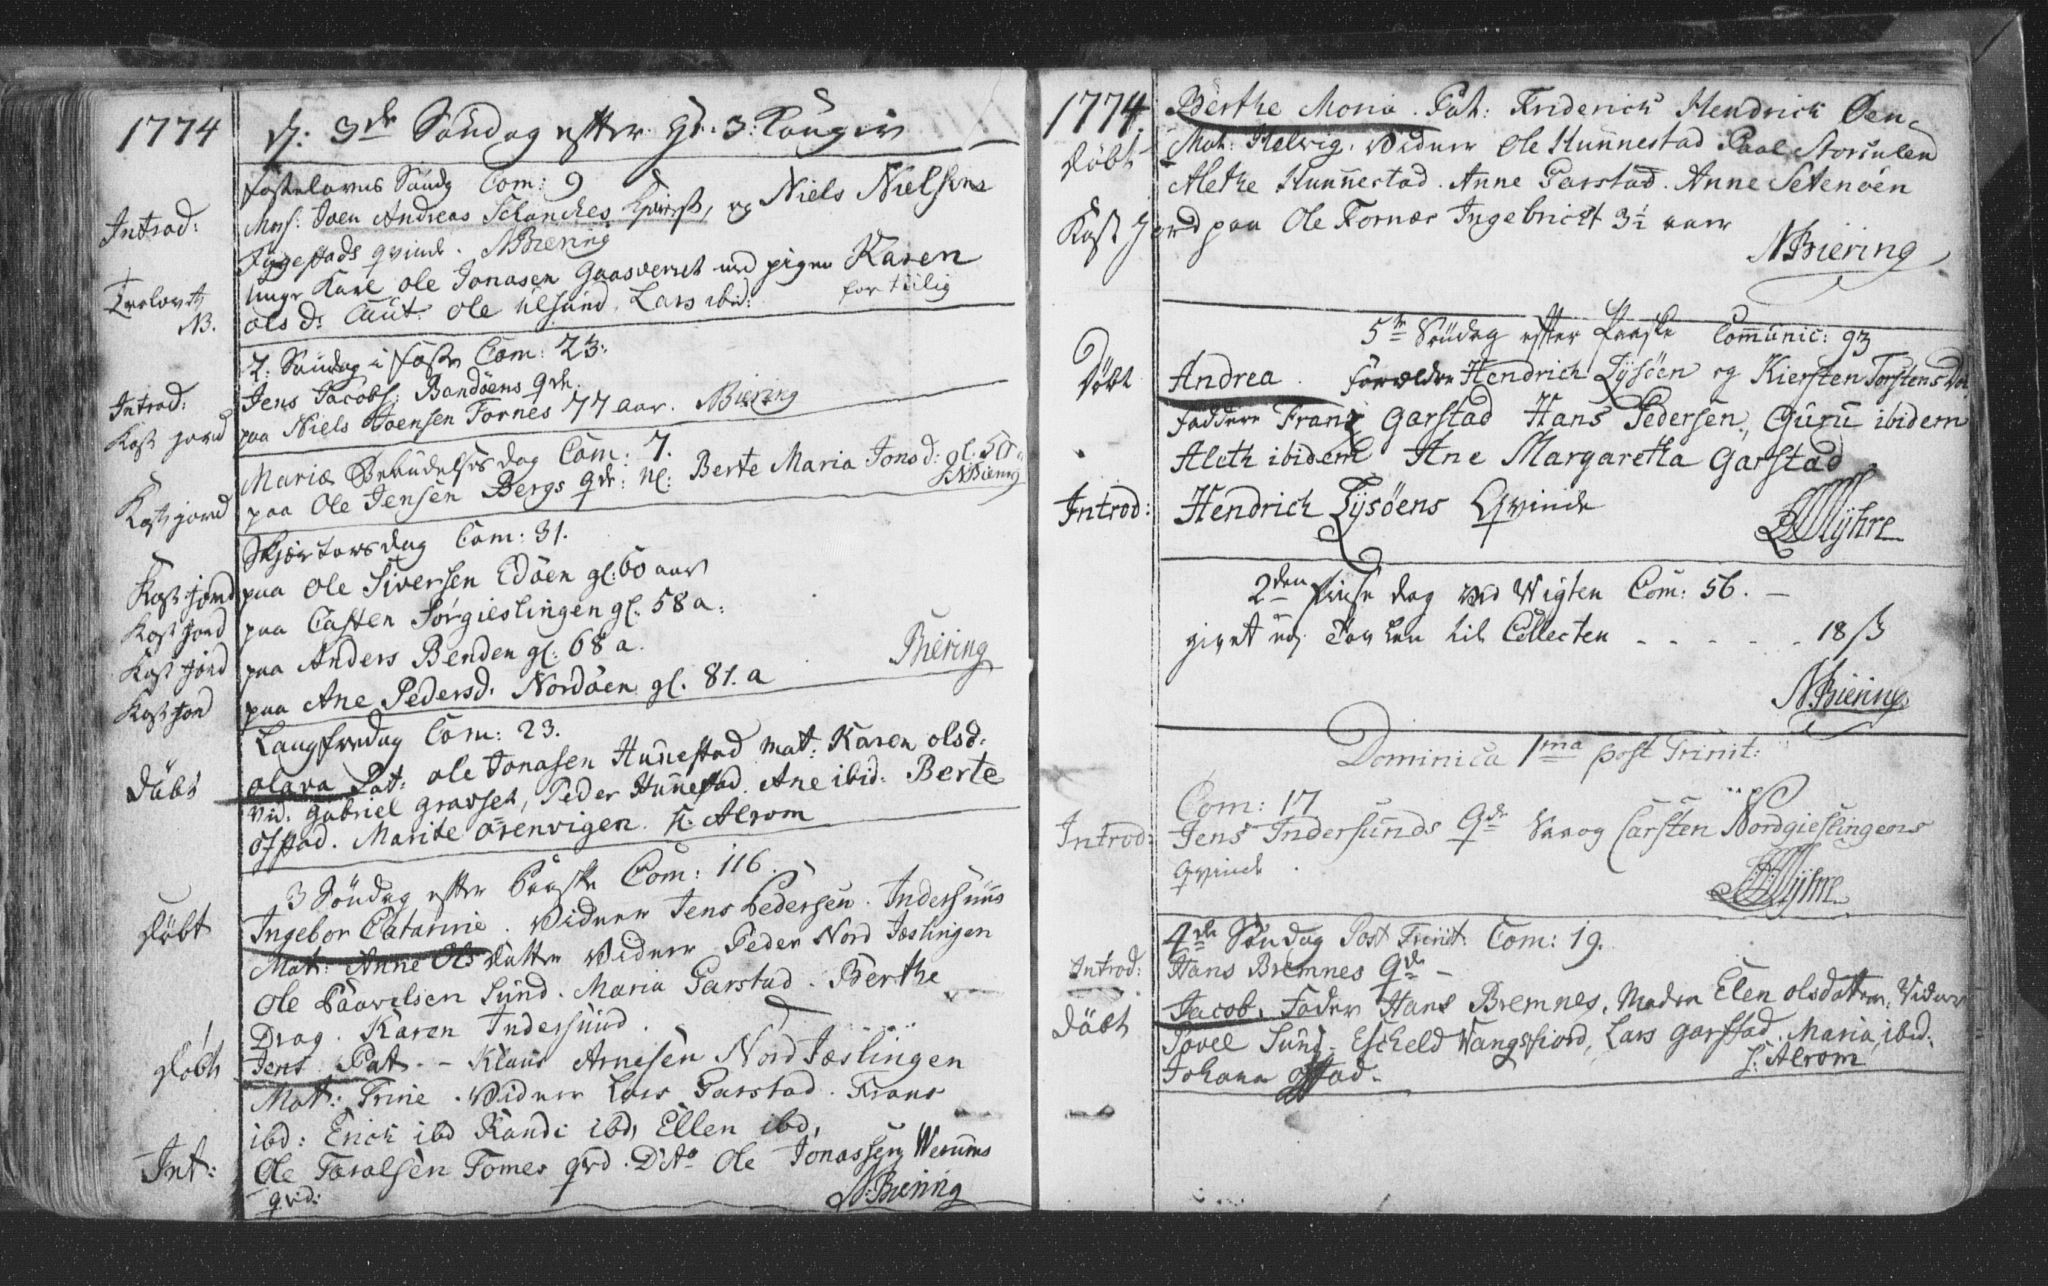 1774
d: 3de Søndag efter H: 3: Konger
Fastelavns Søndg Com: 9
Introd: Mons: Joen Andreas Schanches Hørst, og Niels Nielsens
Fygestads qvinde. NBiering
Trolovt Unge Karl Ole Jonasen Gaasveret med pigen Karen
NB. Ols d: Caut. Ole Ulsund. Lars ibid: for tiilig
2: Søndag i Faste Com: 23:
Introd: Jens Jacobs: Bondøens Qde.
Kast jord paa Niels Joensen Fornes 77 aar. NBiering
Mariæ Bebudelses dag Com: 7.
Kast jord paa Ole Jensen Bergs Qde: nl: Berte Maria Jonsd: gl: 50
NBiering
Skjær torsdag Com: 31.
Kast jord paa Ole Siversen Edøen gl: 60 aar
Kast jord paa Casten Sørgieslingen gl. 58 a:
Kast jord paa Anders Benden gl: 68 a.
Kast jord paa Ane Pedersd. Nordøen gl. 81. a
Biering
Langfredag Com: 23.
Døbt Olava Pat: Ole Jonasen Hunnestad mat: Karen olsd.
Vid: Gabriel Gravset, Peder Hunnestad. Ane ibid: Berte
Ofstad. Marite Ørenvigen. H: Alrom
3 Søndag efter Paaske Com: 116.
Døbt Ingebor Catarine. Vidner Jens Pedersen. Indersuns
Mat: Anne Ols datter Vidner Peder Nord Jæslingen
Ole Paavelsen Sund. Maria Garstad. Berthe
Drag. Karen Indersund.
Døbt Jens Pat. - Klaus Arnesen Nord Jæslingen
Mat: Trine. Vidner Lars Garstad. Frans
ibd: Erich ibd Randi ibd, Ellen ibd,
Int: Ole Taralsen Fornes qvd. Dito Ole Jonassen Werums
qvid: N:Biering
1774. Berthe Moria. Pat: Friderich Hendrich Øen
Døbt Mat: Helvig. Vidner Ole Hunnestad Paal Storsulen
Alethe Hunnestad. Anne Garstad. Anne Setenøen
Kast Jord paa Ole Fornæs Ingebricht 3½ aar
NBiering
5te Søndag efter Paaske Communic: 93
Døbt Andrea. Forældre Hendrich Lysøen og Kiersten Torstens Dot
Faddere Franz Garstad Hans Pedersen, Guru ibidem
Aleth ibidem Ane Margaretha Garstad
Introd: Hendrich Lysøens Qvinde
Myhre
2den Pinse dag ved Wigten Com: 56. -
givet udj Tavlen til Collecten - - - - - - 18 ß
NBiering
Dominica 1ma post Trinit:
Com: 17
Introd: Jens Indersunds Qde samt og Carsten Nordgieslingens
Qvinde.
Myhre.
4de Søndag Post Trinit: Com: 19.
Introd: Hans Bremnes Qde -
Døbt Jacob, Fader Hans Bremnes, Moder Elen olsdatter. Vidner
Povel Sund. Escheld Vangsfiord, Lars Garstad. Maria ibid:
Johana Ofstad. H: Alrom